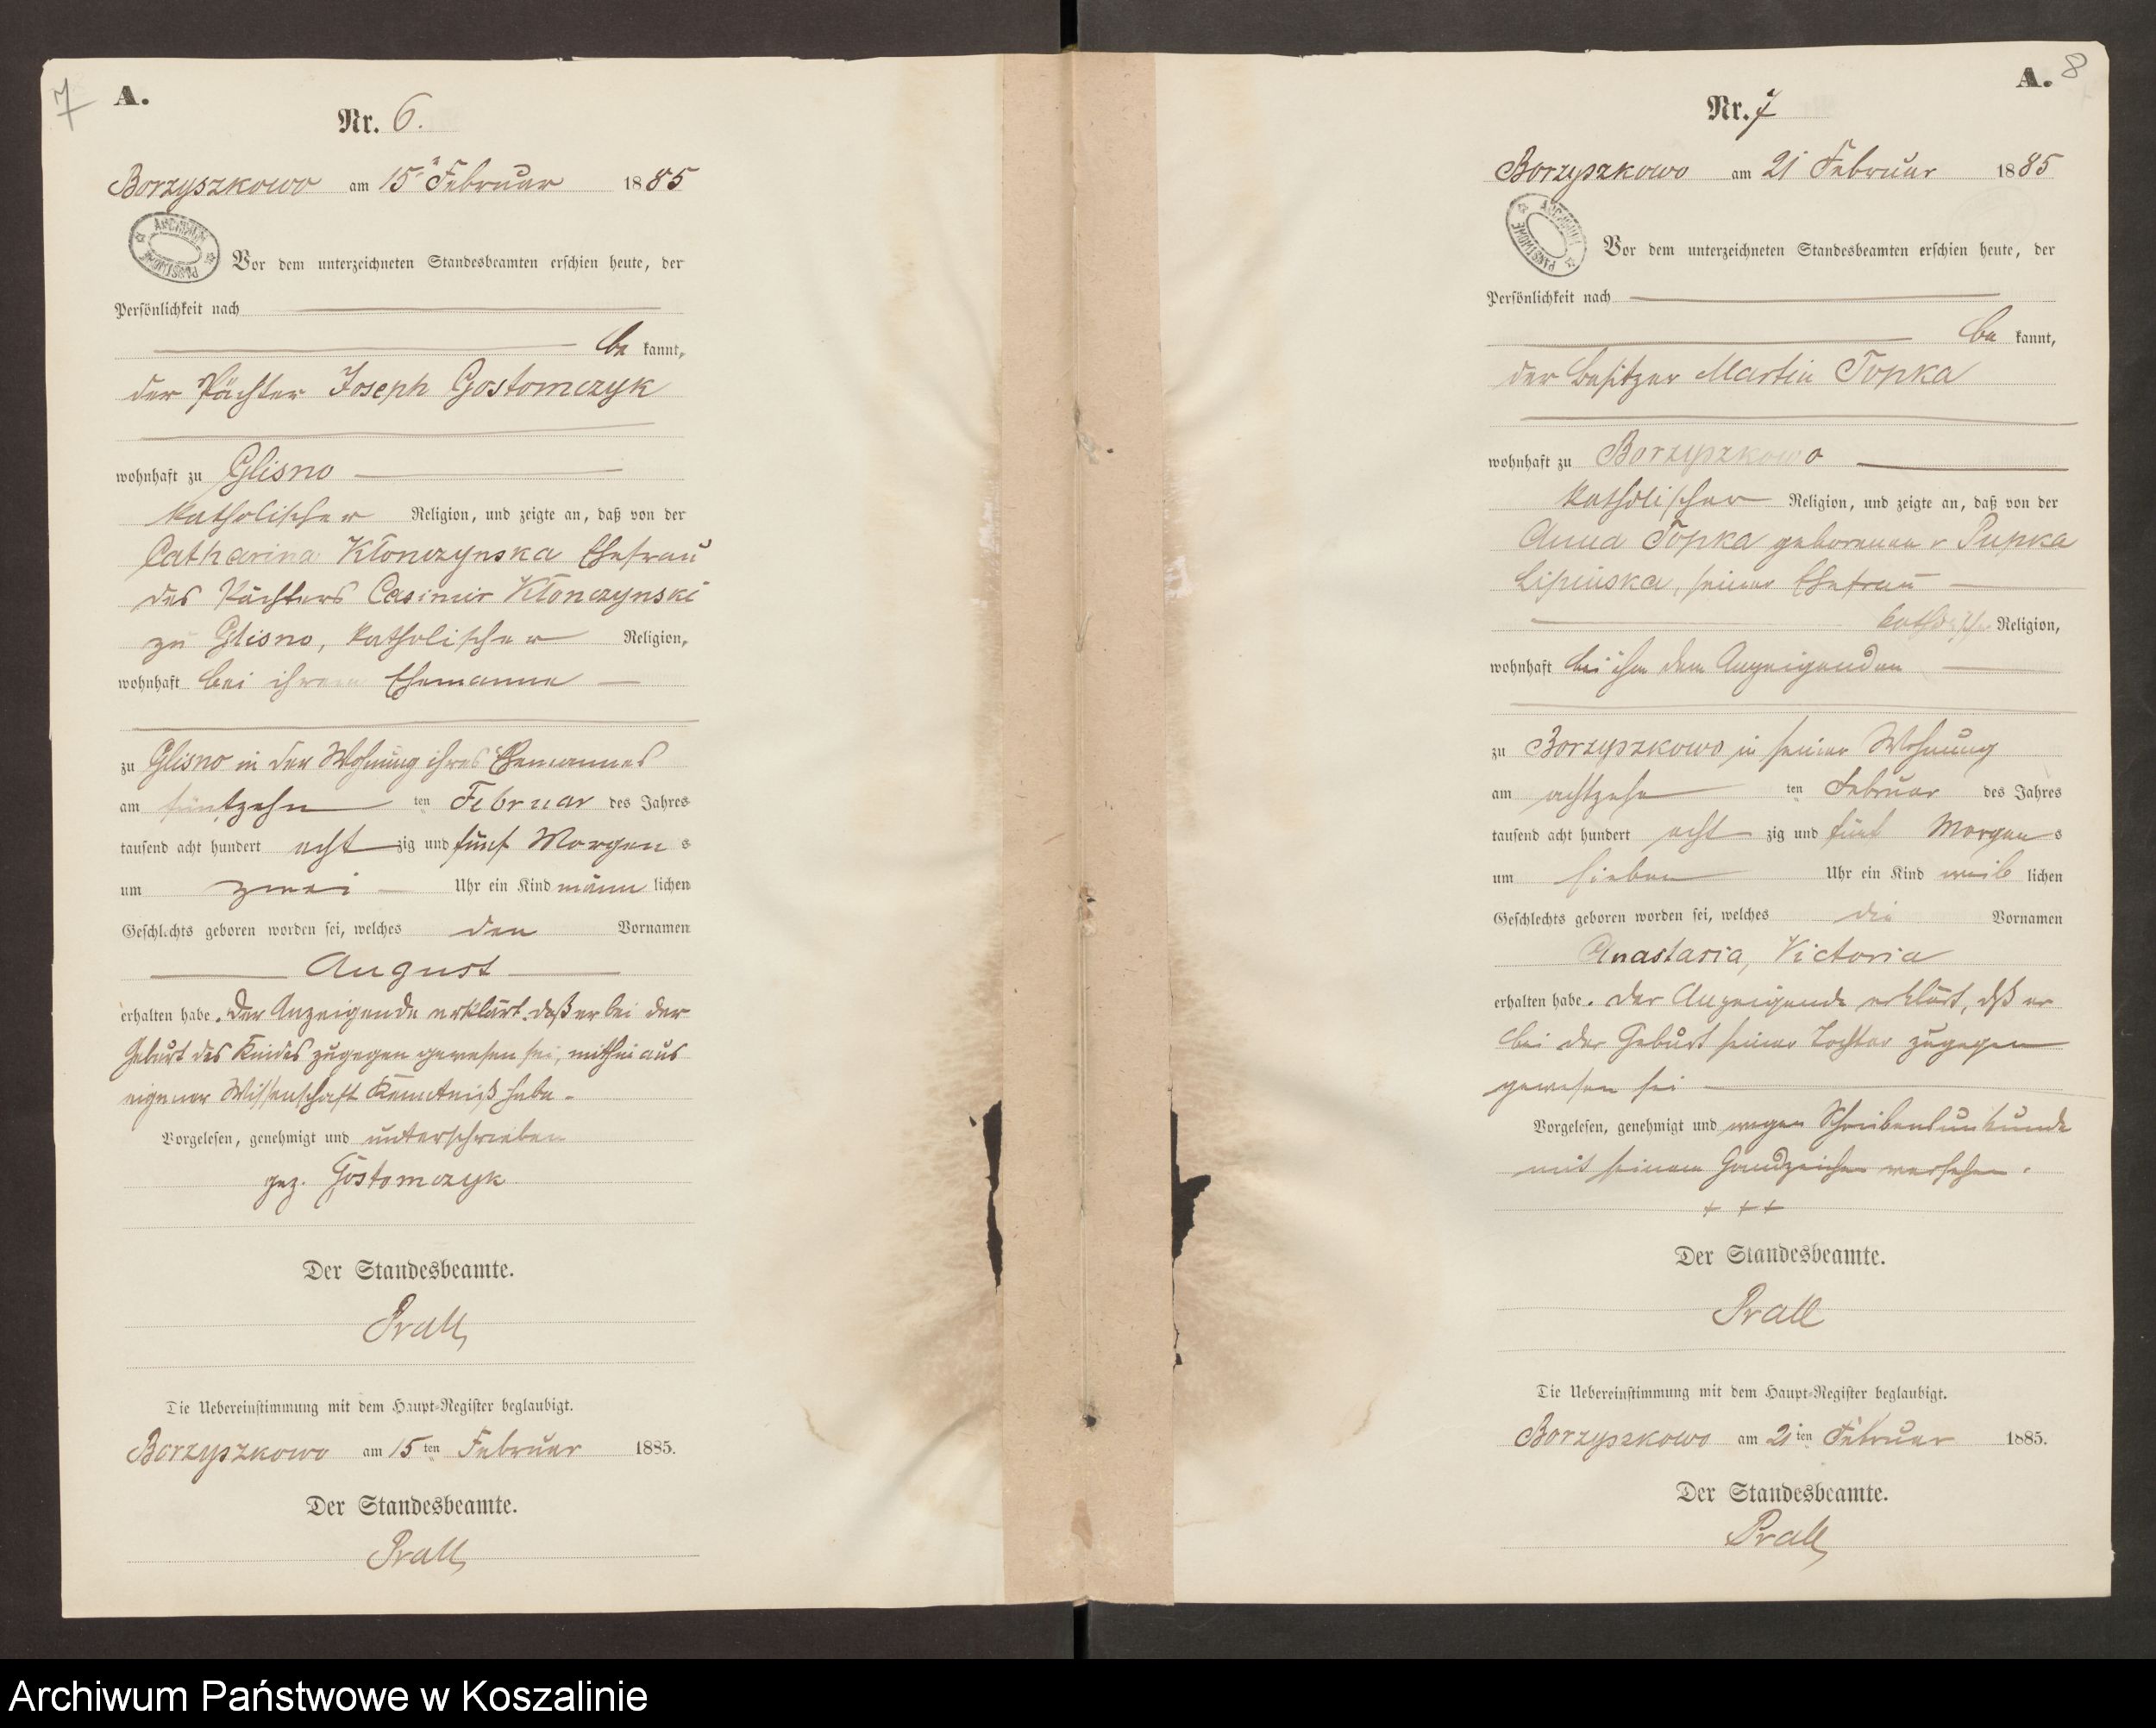 7
A.
Nr. 6.
Borzyszkowo am 15 Februar 1885
ARCHIWUM PAŃSTWOWE
Vor dem unterzeichneten Standesbeamten erschien heute, der
Persönlichkeit nach
be kannt,
der Pächter Joseph Gostomczyk
wohnhaft zu Glisno
katholischer Religion, und zeigte an, daß von der
Catharina Kłonczynska Ehefrau
des Pächters Casimir Kłonczynski
zu Glisno, katholischer Religion,
wohnhaft bei ihrem Ehemanne
zu Glisno in der Wohnung ihres Ehemannes
am fünfzehn ten Februar des Jahres
tausend acht hundert acht zig und fünf Morgen s
um zwei Uhr ein Kind männ lichen
Geschlechts geboren worden sei, welches den Vornamen
August
erhalten habe. Der Anzeigende erklärt, daß er bei der
Geburt des Kindes zugegen gewesen sei, mithin aus
eigener Wissenschaft Kenntniß habe.
Vorgelesen, genehmigt und unterschrieben
gez. Gostomczyk
Der Standesbeamte.
Prall
Die Uebereinstimmung mit dem Haupt-Register beglaubigt.
Borzyszkowo am 15 ten Februar 1885.
Der Standesbeamte.
Prall
8
A.
Nr. 7
Borzyszkowo am 21 Februar 1885
ARCHIWUM PAŃSTWOWE
Vor dem unterzeichneten Standesbeamten erschien heute, der
Persönlichkeit nach
be kannt,
der Besitzer Martin Topka
wohnhaft zu Borzyszkowo
katholischer Religion, und zeigte an, daß von der
Anna Topka geborenen v Pupka
Lipinska, seiner Ehefrau
kathol. Religion,
wohnhaft bei ihm dem Anzeigenden
zu Borzyszkowo in seiner Wohnung
am achtzehn ten Februar des Jahres
tausend acht hundert acht zig und fünf Morgen s
um sieben Uhr ein Kind weib lichen
Geschlechts geboren worden sei, welches die Vornamen
Anastasia, Victoria
erhalten habe. Der Anzeigende erklärt, dß er
bei der Geburt seiner Tochter zugegen
gewesen sei
Vorgelesen, genehmigt und wegen Schreibensunkunde
mit seinem Handzeichen versehen.
+ + +
Der Standesbeamte.
Prall
Die Uebereinstimmung mit dem Haupt-Register beglaubigt.
Borzyszkowo am 21 ten Februar 1885.
Der Standesbeamte.
Prall
Archiwum Państwowe w Koszalinie